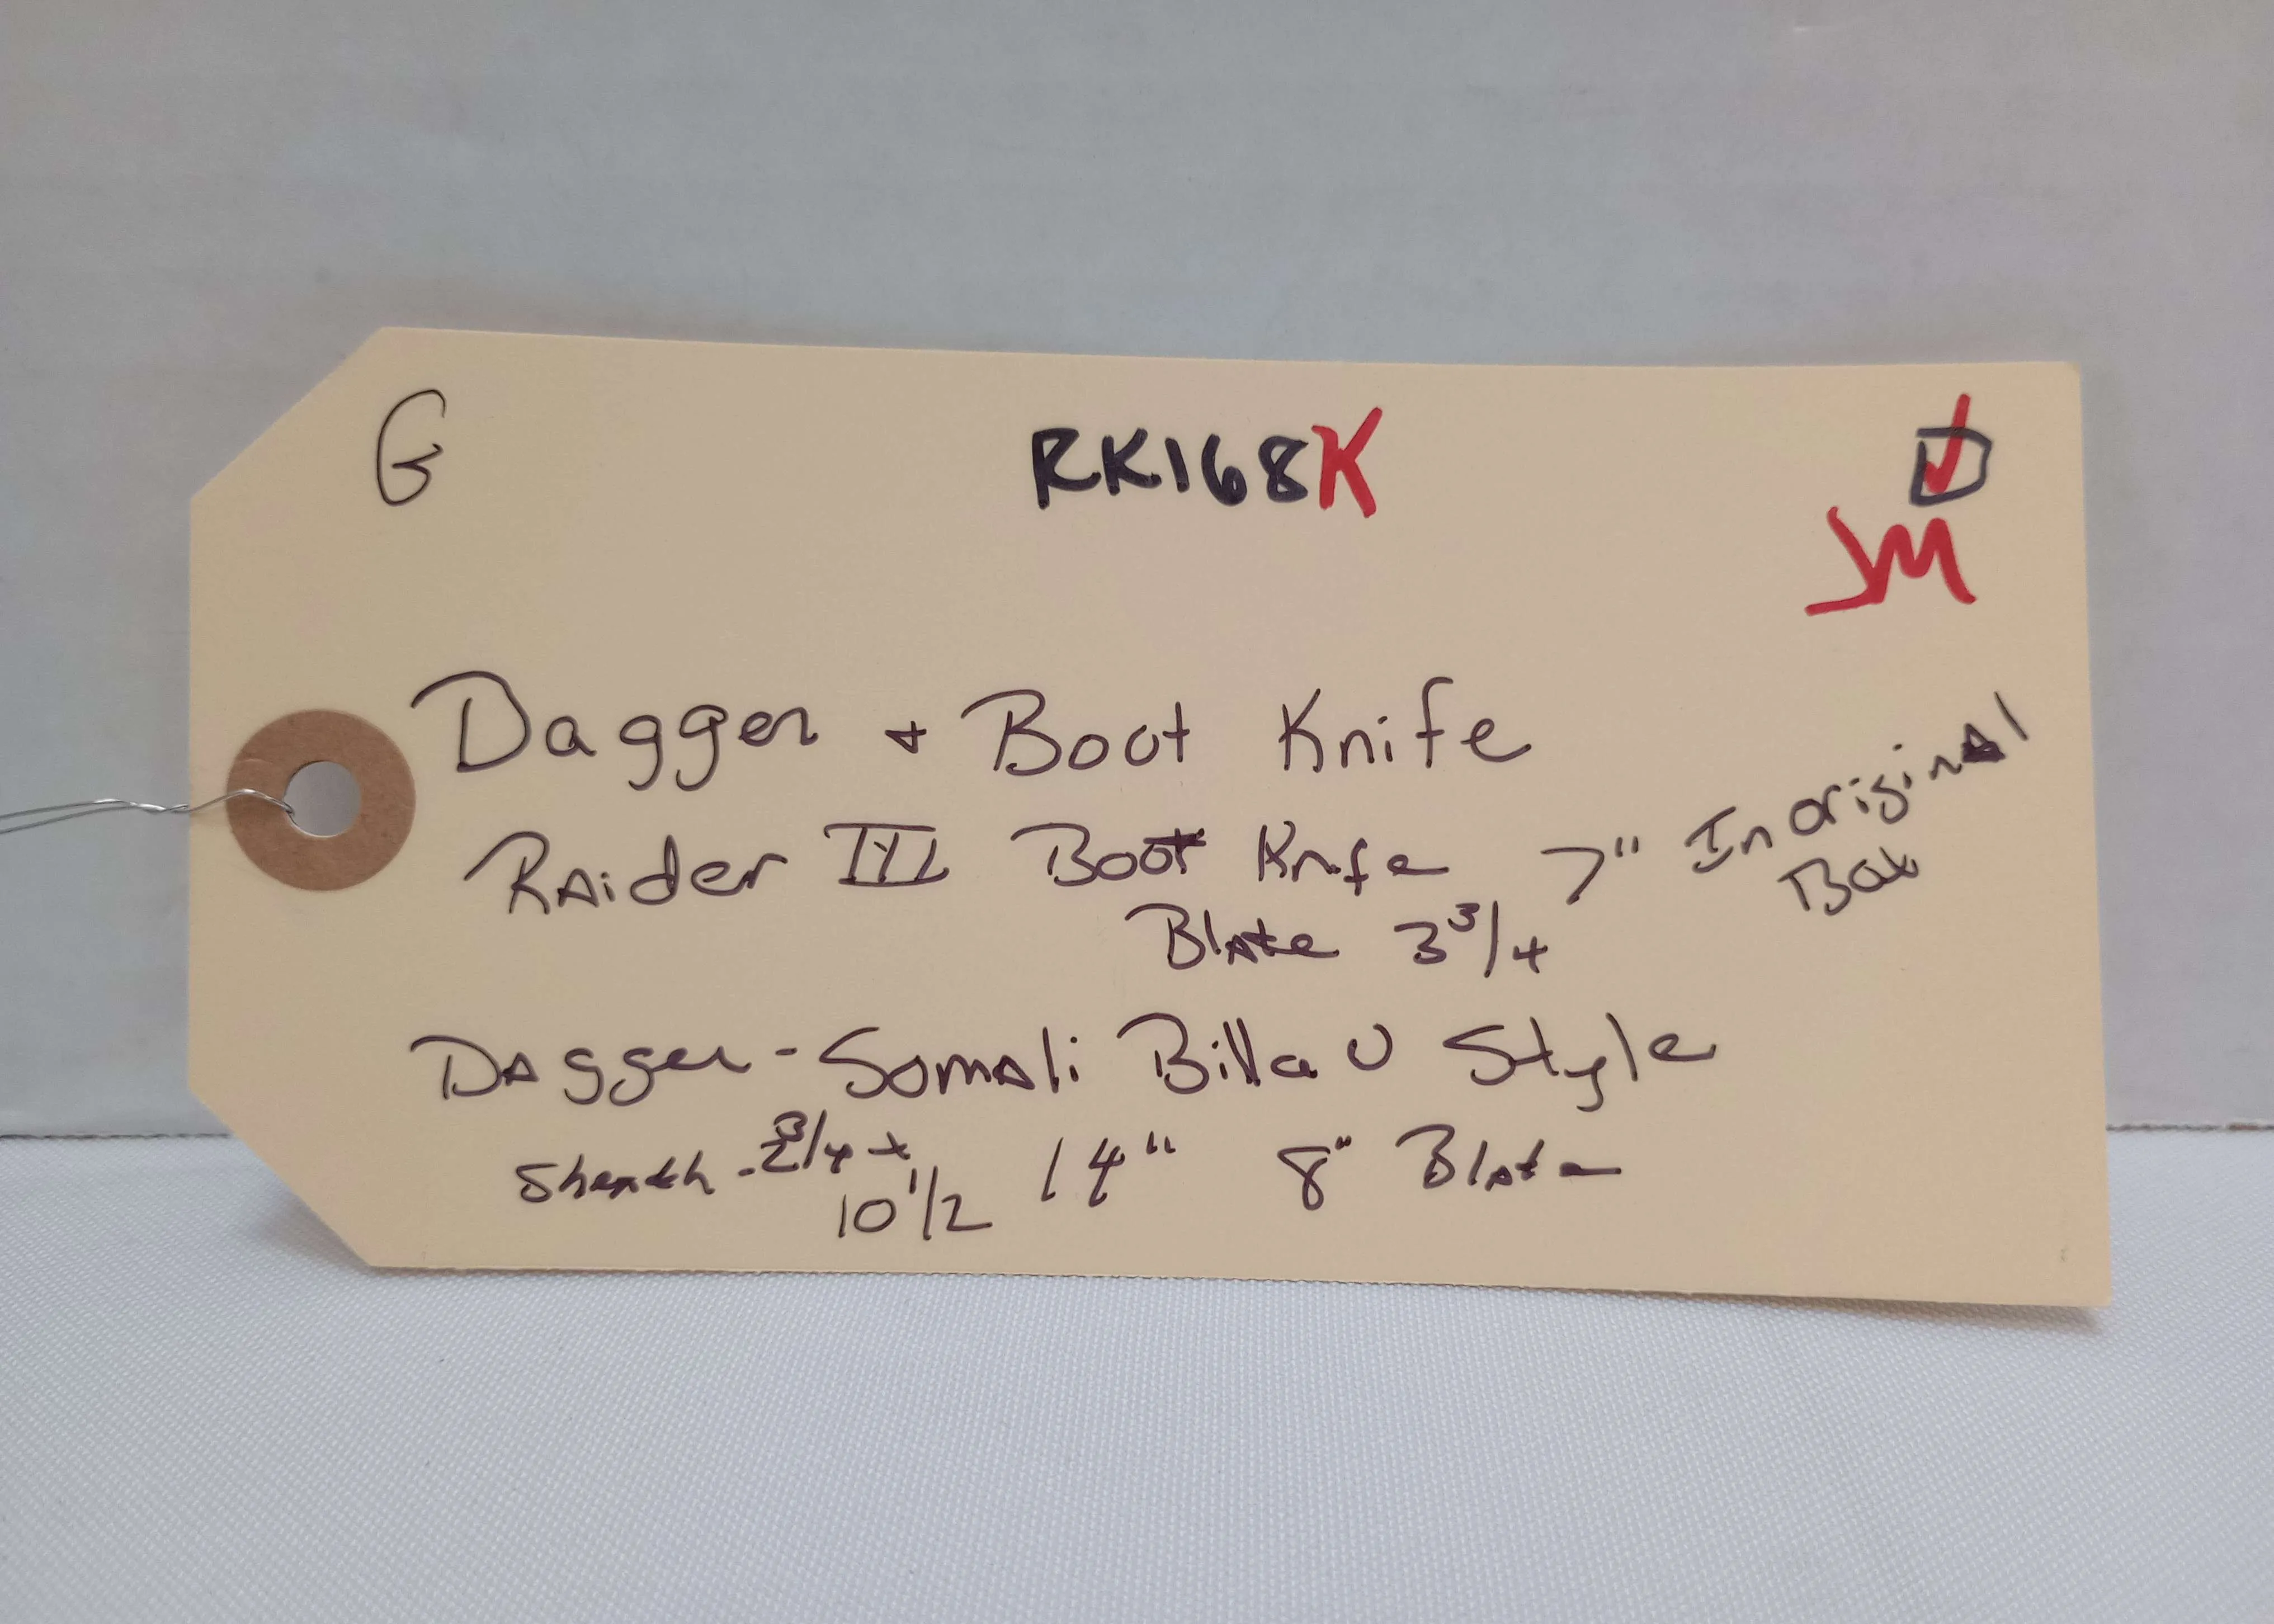 G RK168K
JM
Dagger + Boot Knife
Raider III Boot Knife 7" In original
Box
Blade 3 3/4
Dagger - Somali Billao Style
Sheath - 2 3/4 x 14" 8" Blade
10 1/2